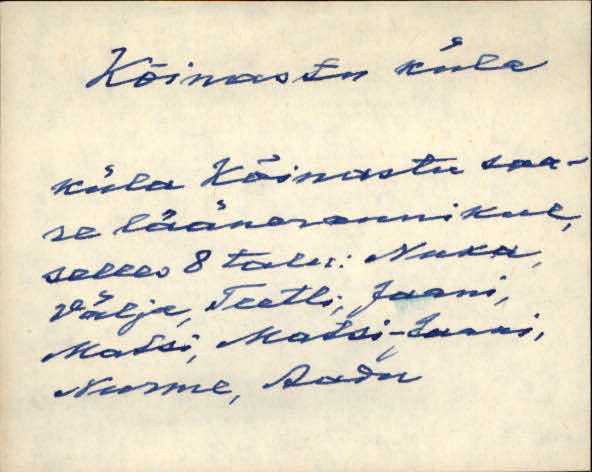 Kõinastu küla
küla Kõinastu saa-
re läänerannikul,
selles 8 talu: Nuka,
Välja, Teetli, Jaani,
Matsi, Matsi-Jaani,
Nurme, Aadu